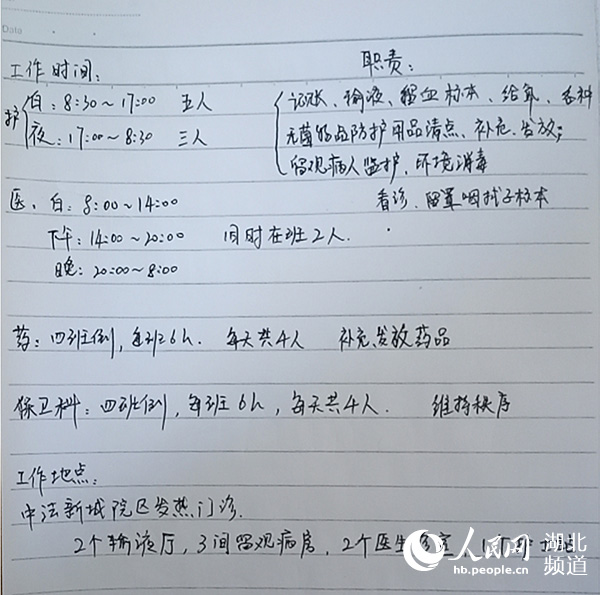 Date
工作时间： 职责：
护 白：8:30～17:00 五人 记账、输液、留血标本、给氧、各种
夜：17:00～8:30 三人 无菌物品防护用品清点、补充、发放；
留观病人监护、环境消毒
医、白：8:00～14:00 看诊、留置咽拭子标本
下午：14:00～20:00 同时在班2人.
晚：20:00～8:00
药：四班倒，每班6h. 每天共4人 补充发放药品
保卫科：四班倒，每班6h，每天共4人. 维持秩序
工作地点：
中法新城院区发热门诊.
2个输液厅，3间留观病房，2个医生诊室，1个
人民网 湖北频道
hb.people.cn